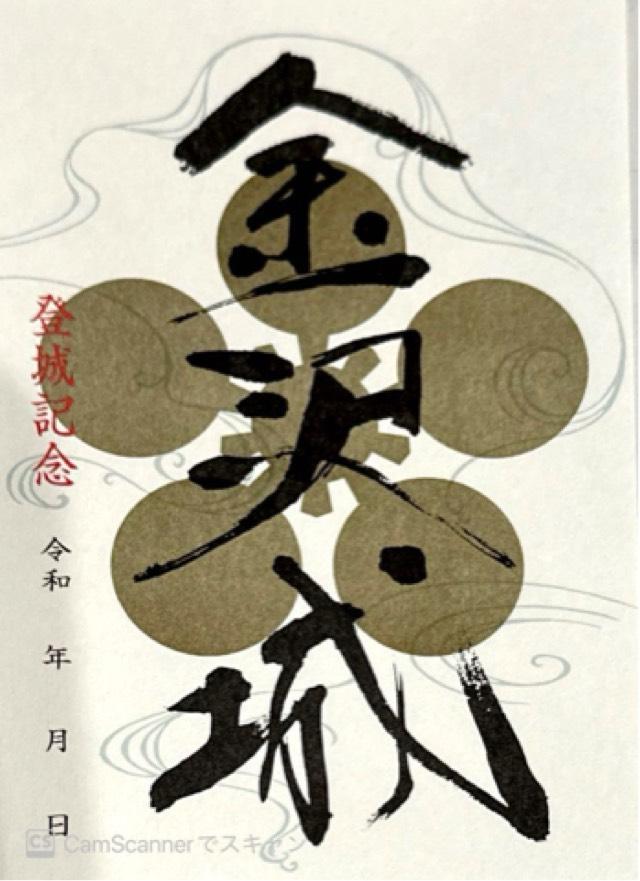 金沢城
登城記念
令和 年 月 日
CS CamScannerでスキャン